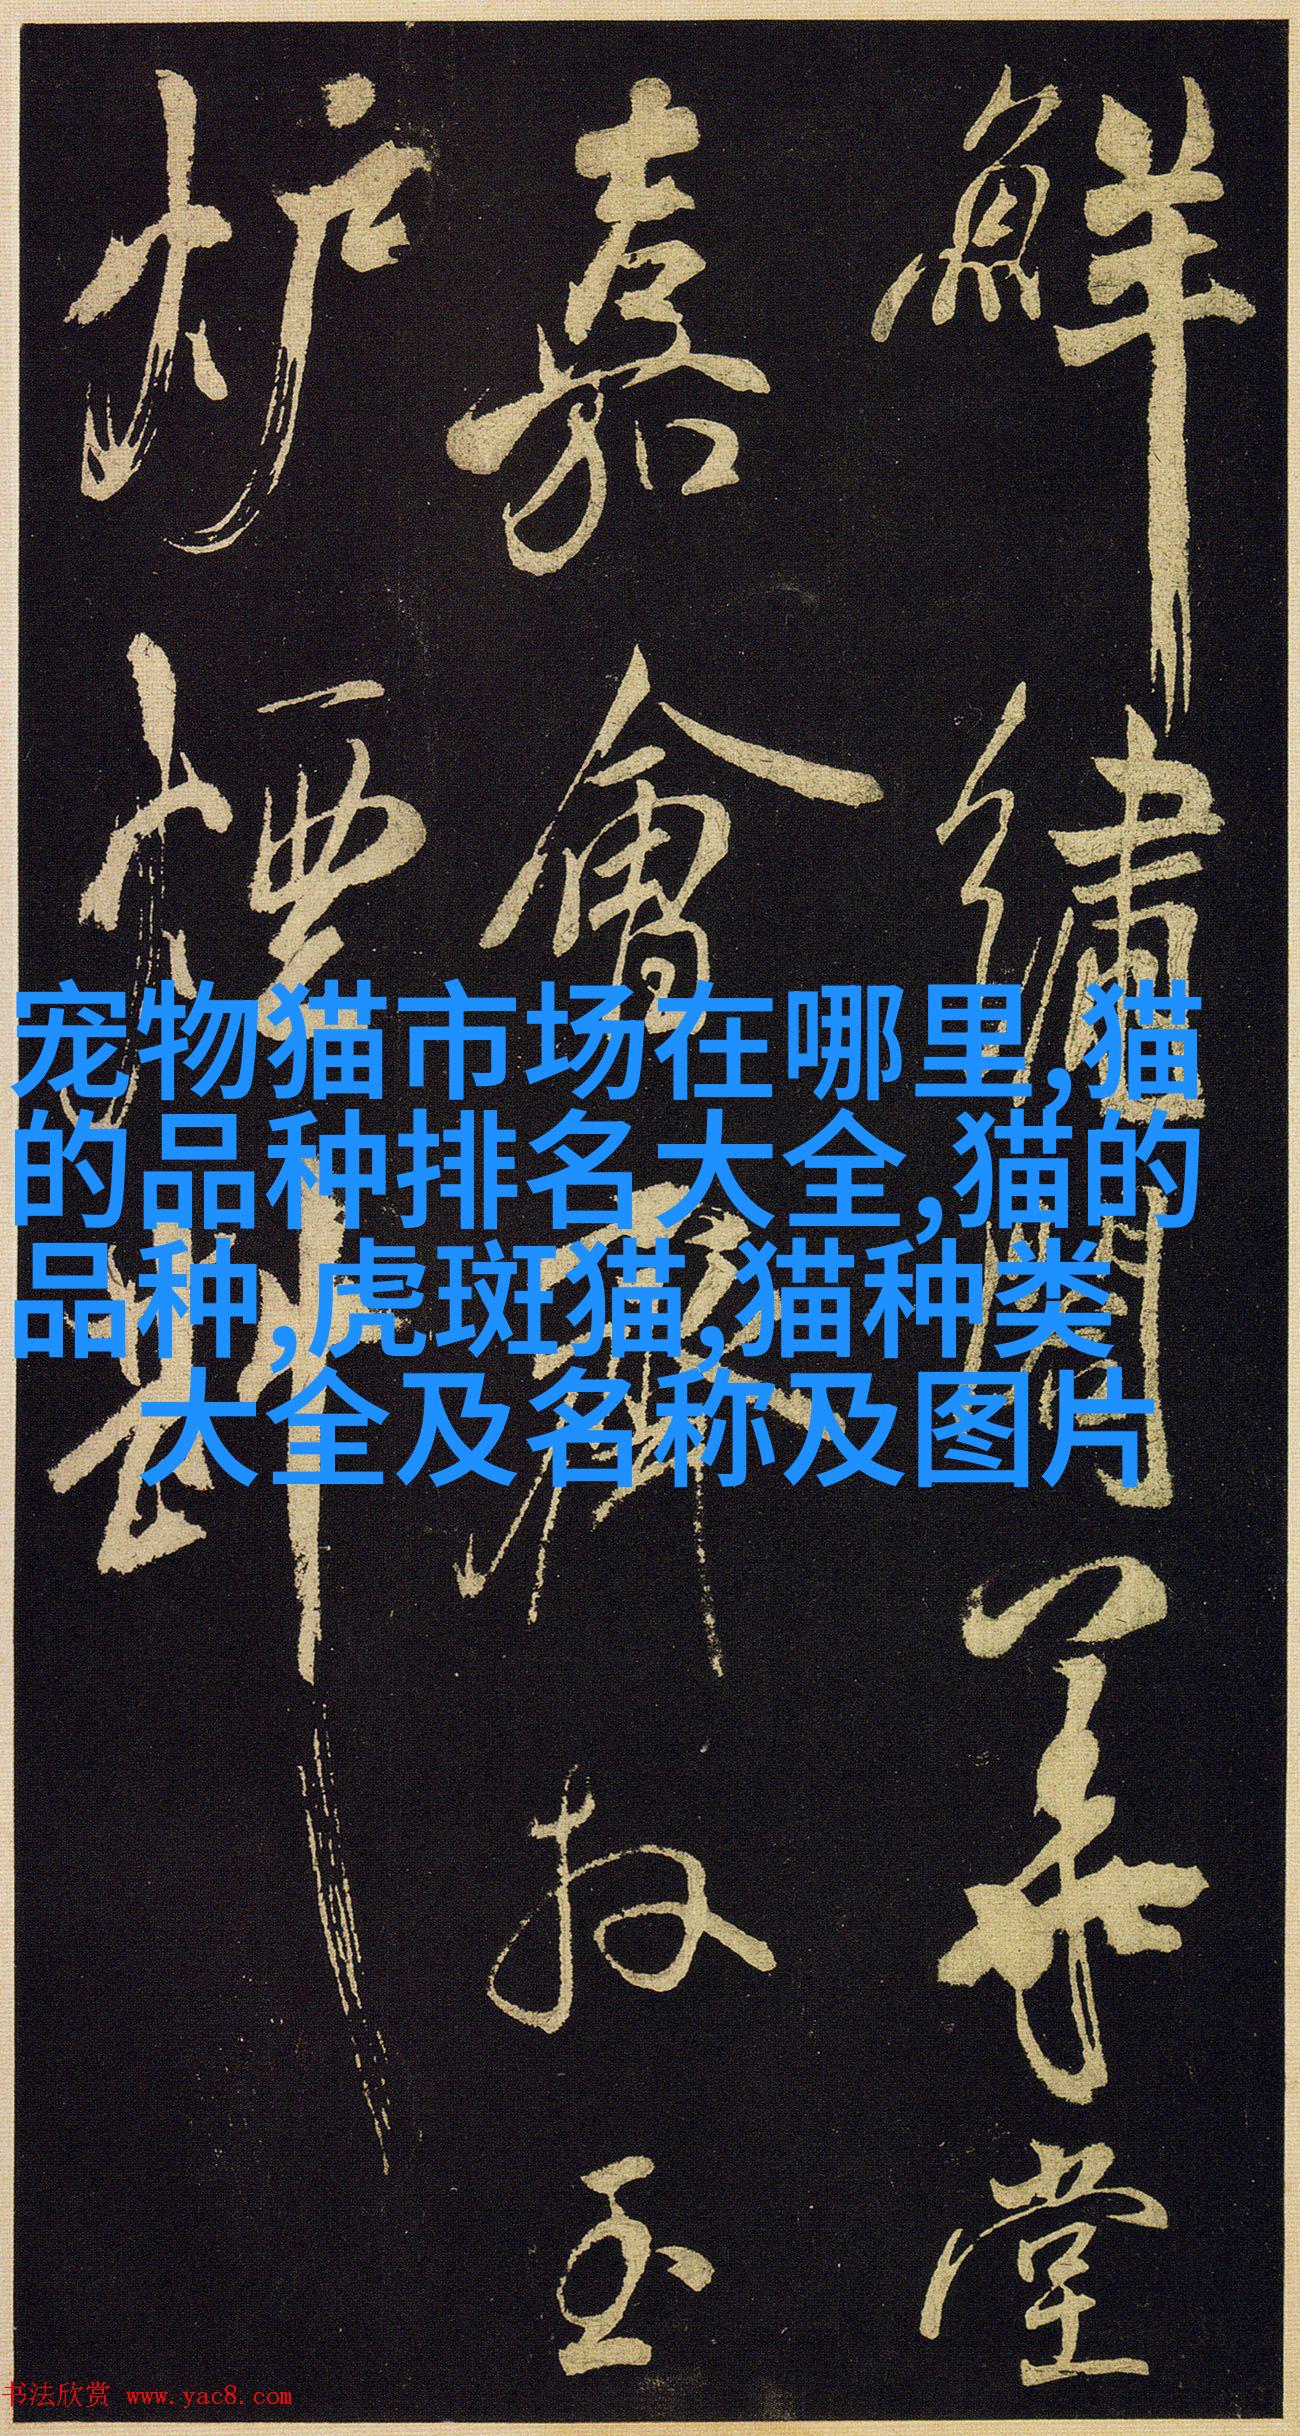 鮮繡閣華堂
嘉會
故玉
炉煙斟
宠物猫市场在哪里,猫
的品种排名大全,猫的
品种,虎斑猫,猫种类
大全及名称及图片
书法欣赏 www.yac8.com